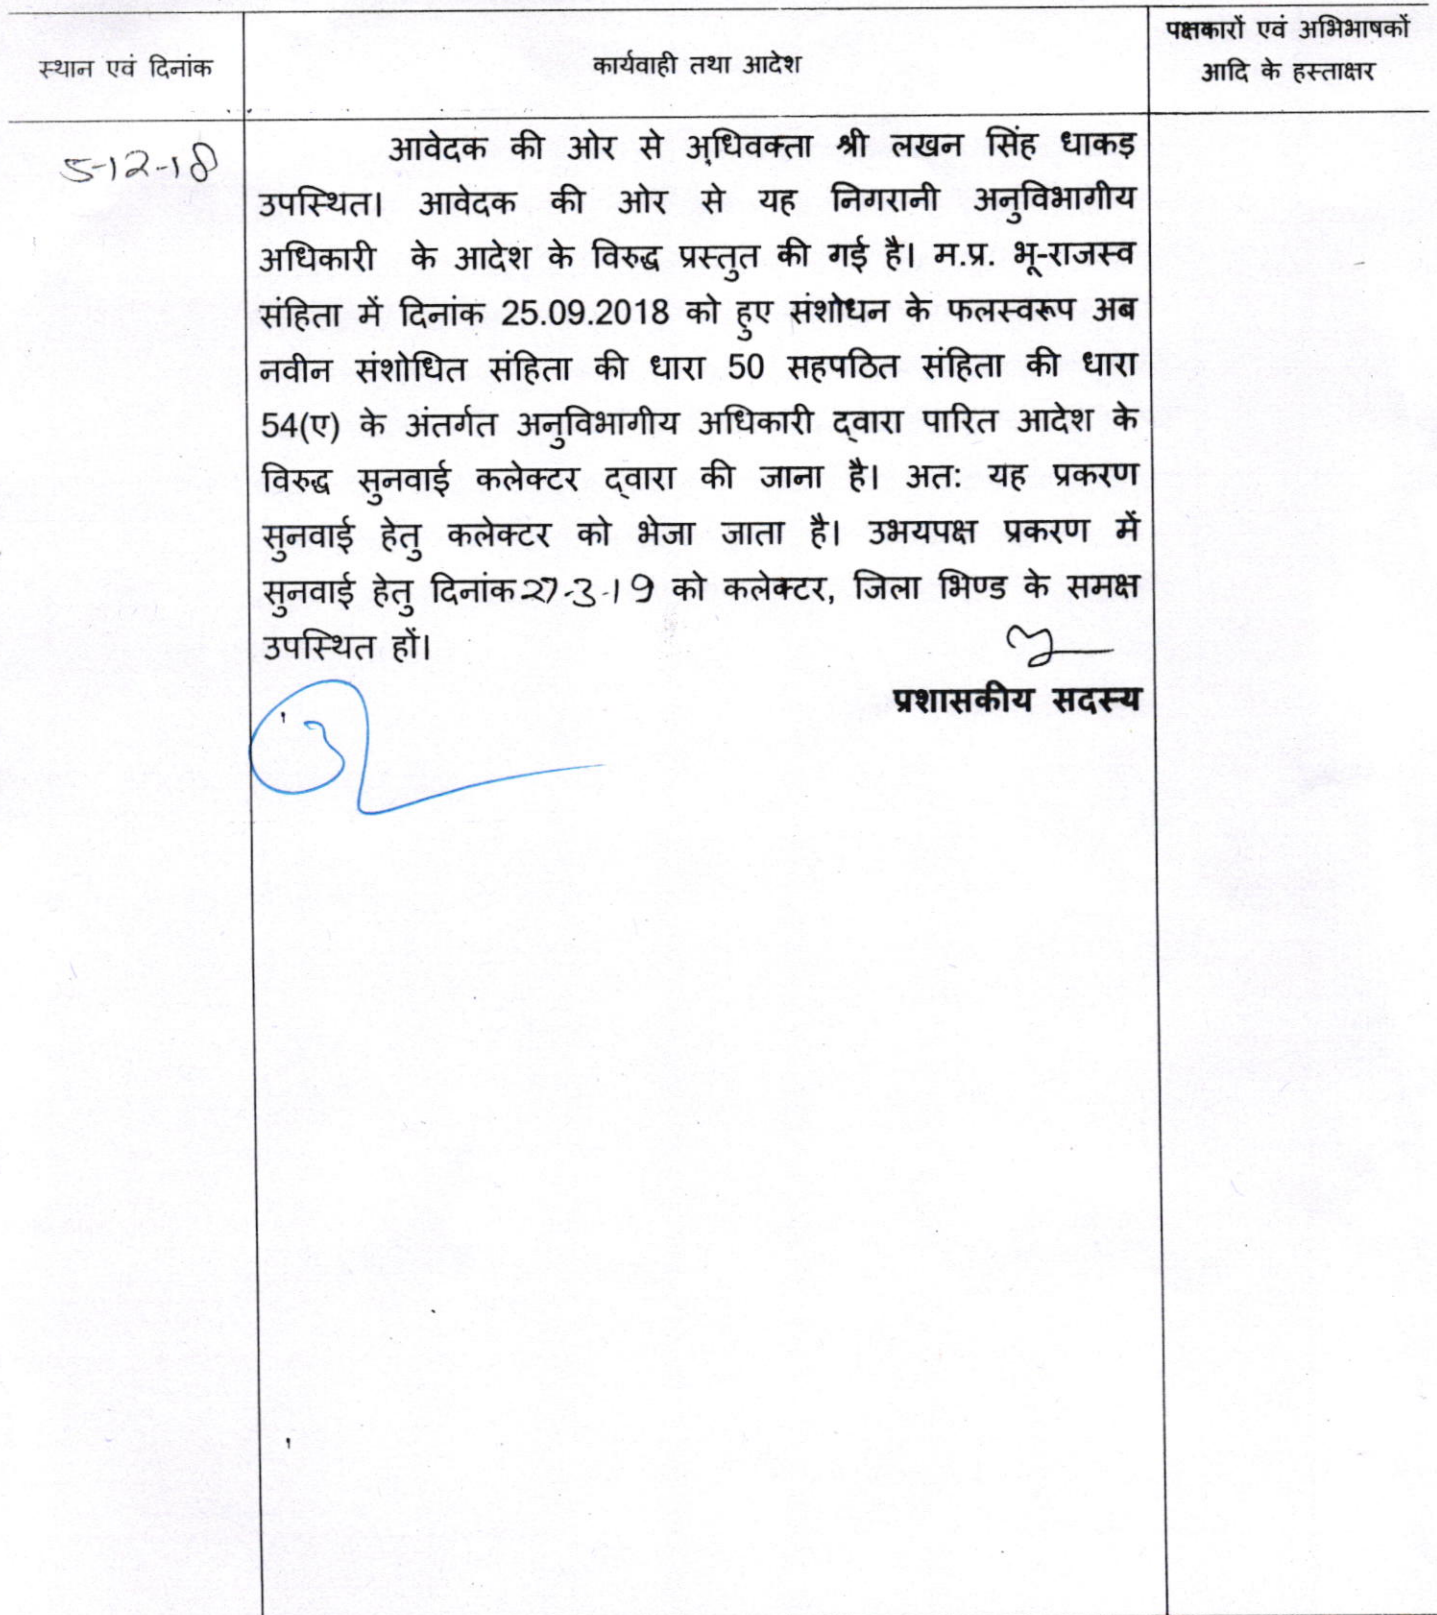 स्थान एवं दिनांक
कार्यवाही तथा आदेश
पक्षकारों एवं अभिभाषकों
आदि के हस्ताक्षर
5-12-18
आवेदक की ओर से अधिवक्ता श्री लखन सिंह धाकड़
उपस्थित। आवेदक की ओर से यह निगरानी अनुविभागीय
अधिकारी के आदेश के विरुद्ध प्रस्तुत की गई है। म.प्र. भू-राजस्व
संहिता में दिनांक 25.09.2018 को हुए संशोधन के फलस्वरूप अब
नवीन संशोधित संहिता की धारा 50 सहपठित संहिता की धारा
54(ए) के अंतर्गत अनुविभागीय अधिकारी द्वारा पारित आदेश के
विरुद्ध सुनवाई कलेक्टर द्वारा की जाना है। अतः यह प्रकरण
सुनवाई हेतु कलेक्टर को भेजा जाता है। उभयपक्ष प्रकरण में
सुनवाई हेतु दिनांक 27-3-19 को कलेक्टर, जिला भिण्ड के समक्ष
उपस्थित हों।
प्रशासकीय सदस्य